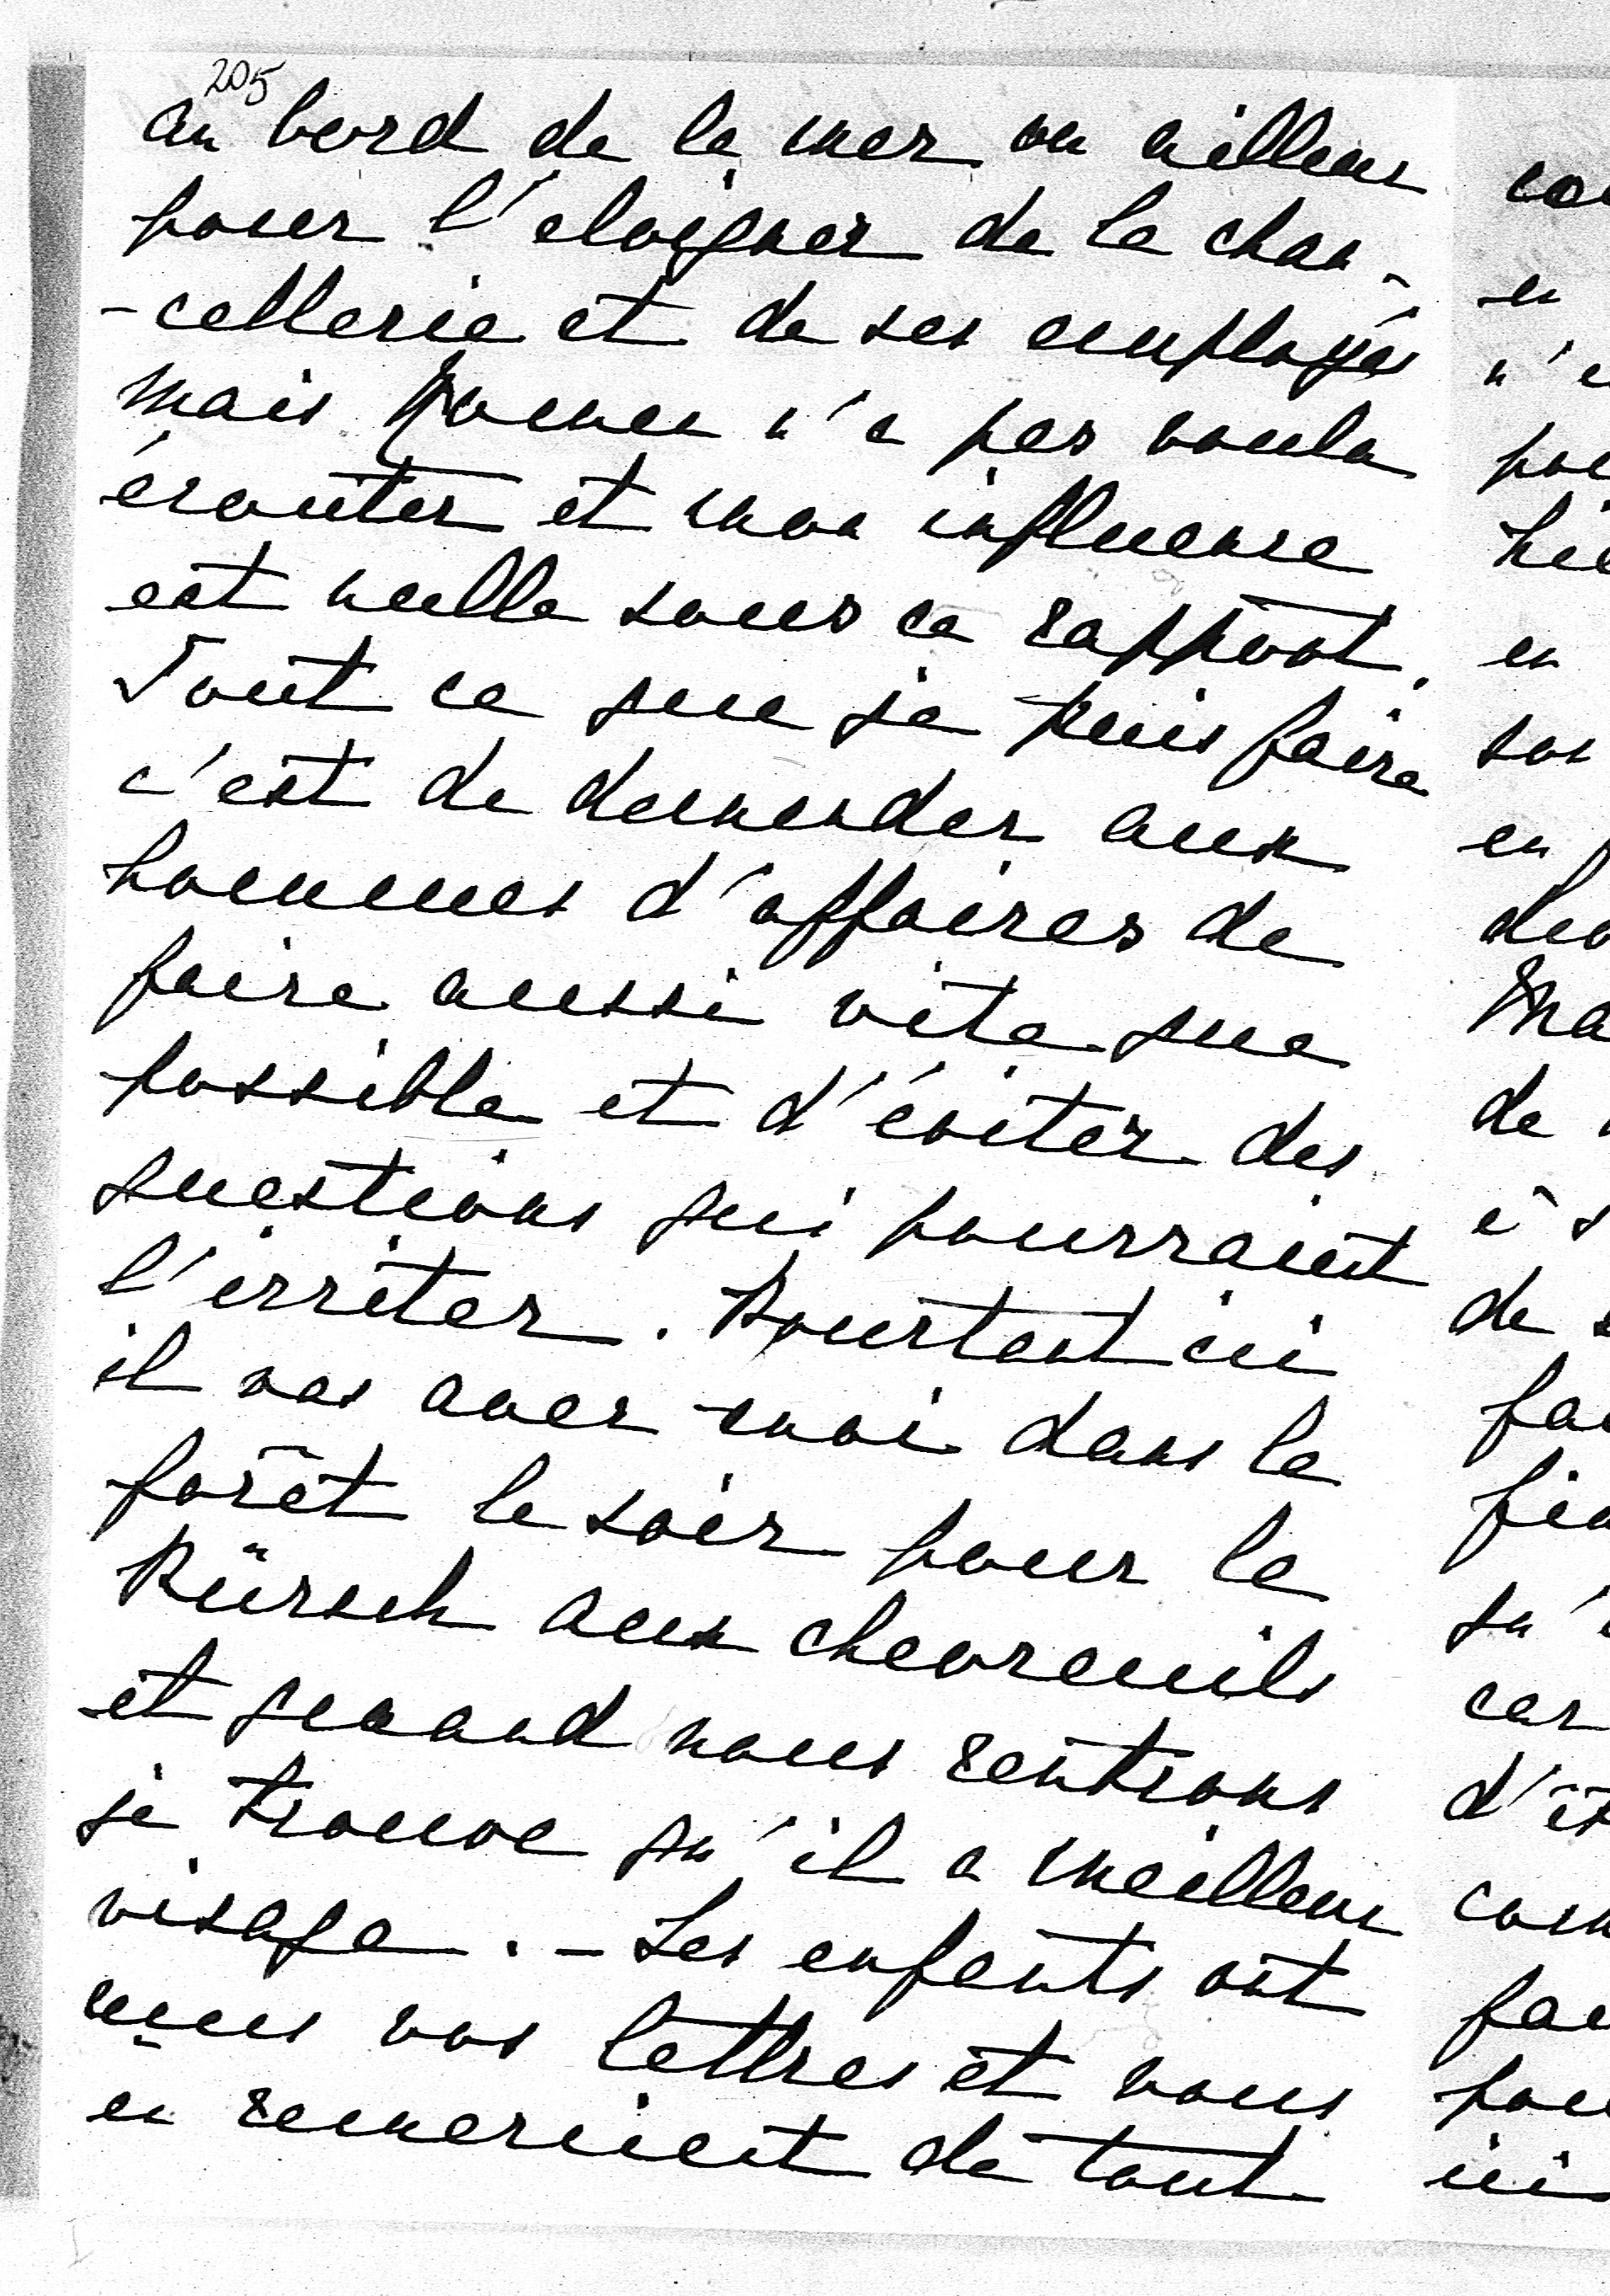 205
au bord de la mer ou ailleurs
pour l'eloigner de la chan-
-cellerie et de ses employés
mais n'a pas voulu
écouter et mon influence
est nulle sous ce rapport.
Tout ce que je puis faire
c'est de demander aux
hommes d'affaires de
faire aussi vite que
possible et d'éviter des
questions qui pourraient
l'irriter. Pourtant ici
il vas avec moi dans la
forêt le soir pour le
Pürsch aux chevreuils
et quand nous rentrons
je trouve qu'il a meilleur
visage. - Les enfants ont
reçus vos lettres et vous
en remercient de tout
en
n'e
en
en
de
de
car
ici